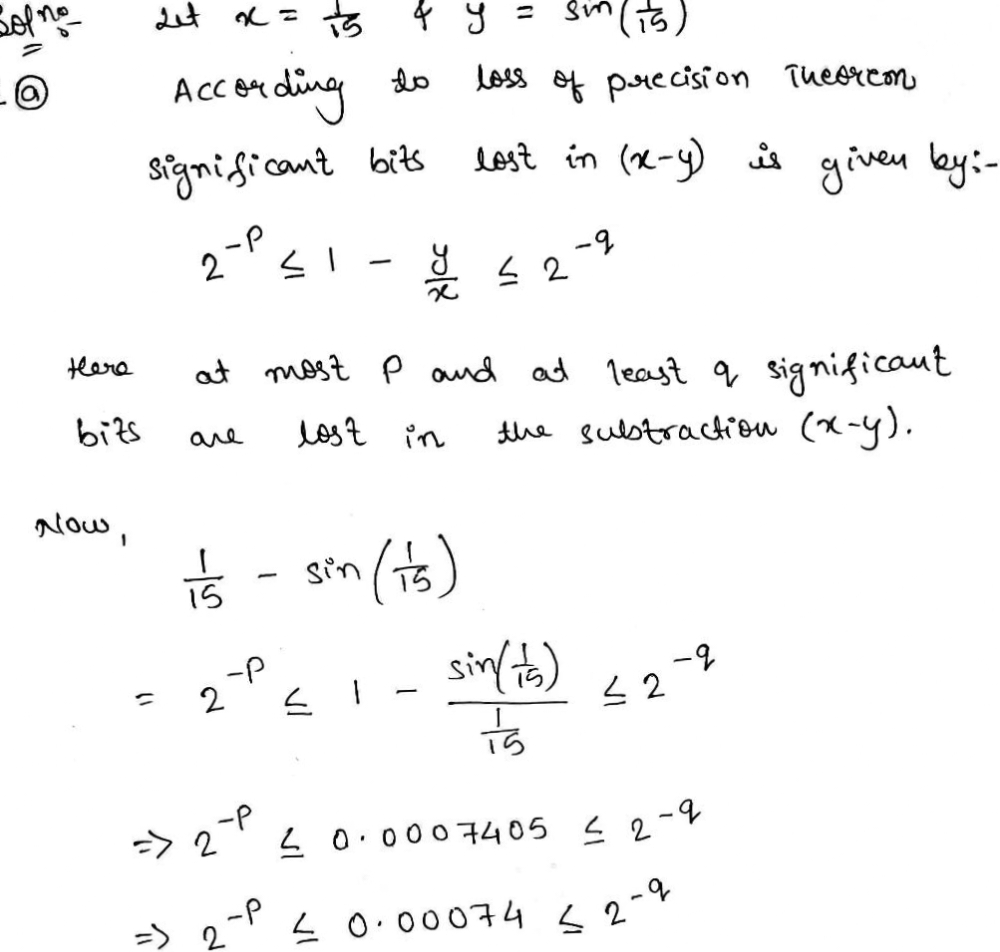 Solno:- Let x = 1/15 & y = sin(1/15)
(a) According to loss of precision Theorem
significant bits lost in (x-y) is given by:-
2^-p ≤ 1 - y/x ≤ 2^-q
Here at most p and at least q significant
bits are lost in the substraction (x-y).
Now,
1/15 - sin(1/15)
= 2^-p ≤ 1 - sin(1/15)/(1/15) ≤ 2^-q
=> 2^-p ≤ 0.0007405 ≤ 2^-q
=> 2^-p ≤ 0.00074 ≤ 2^-q